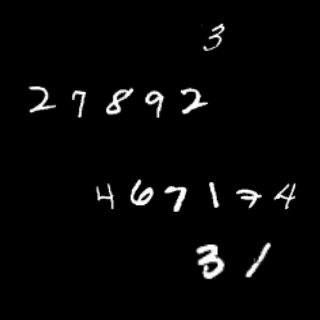 3
27892
467174
31